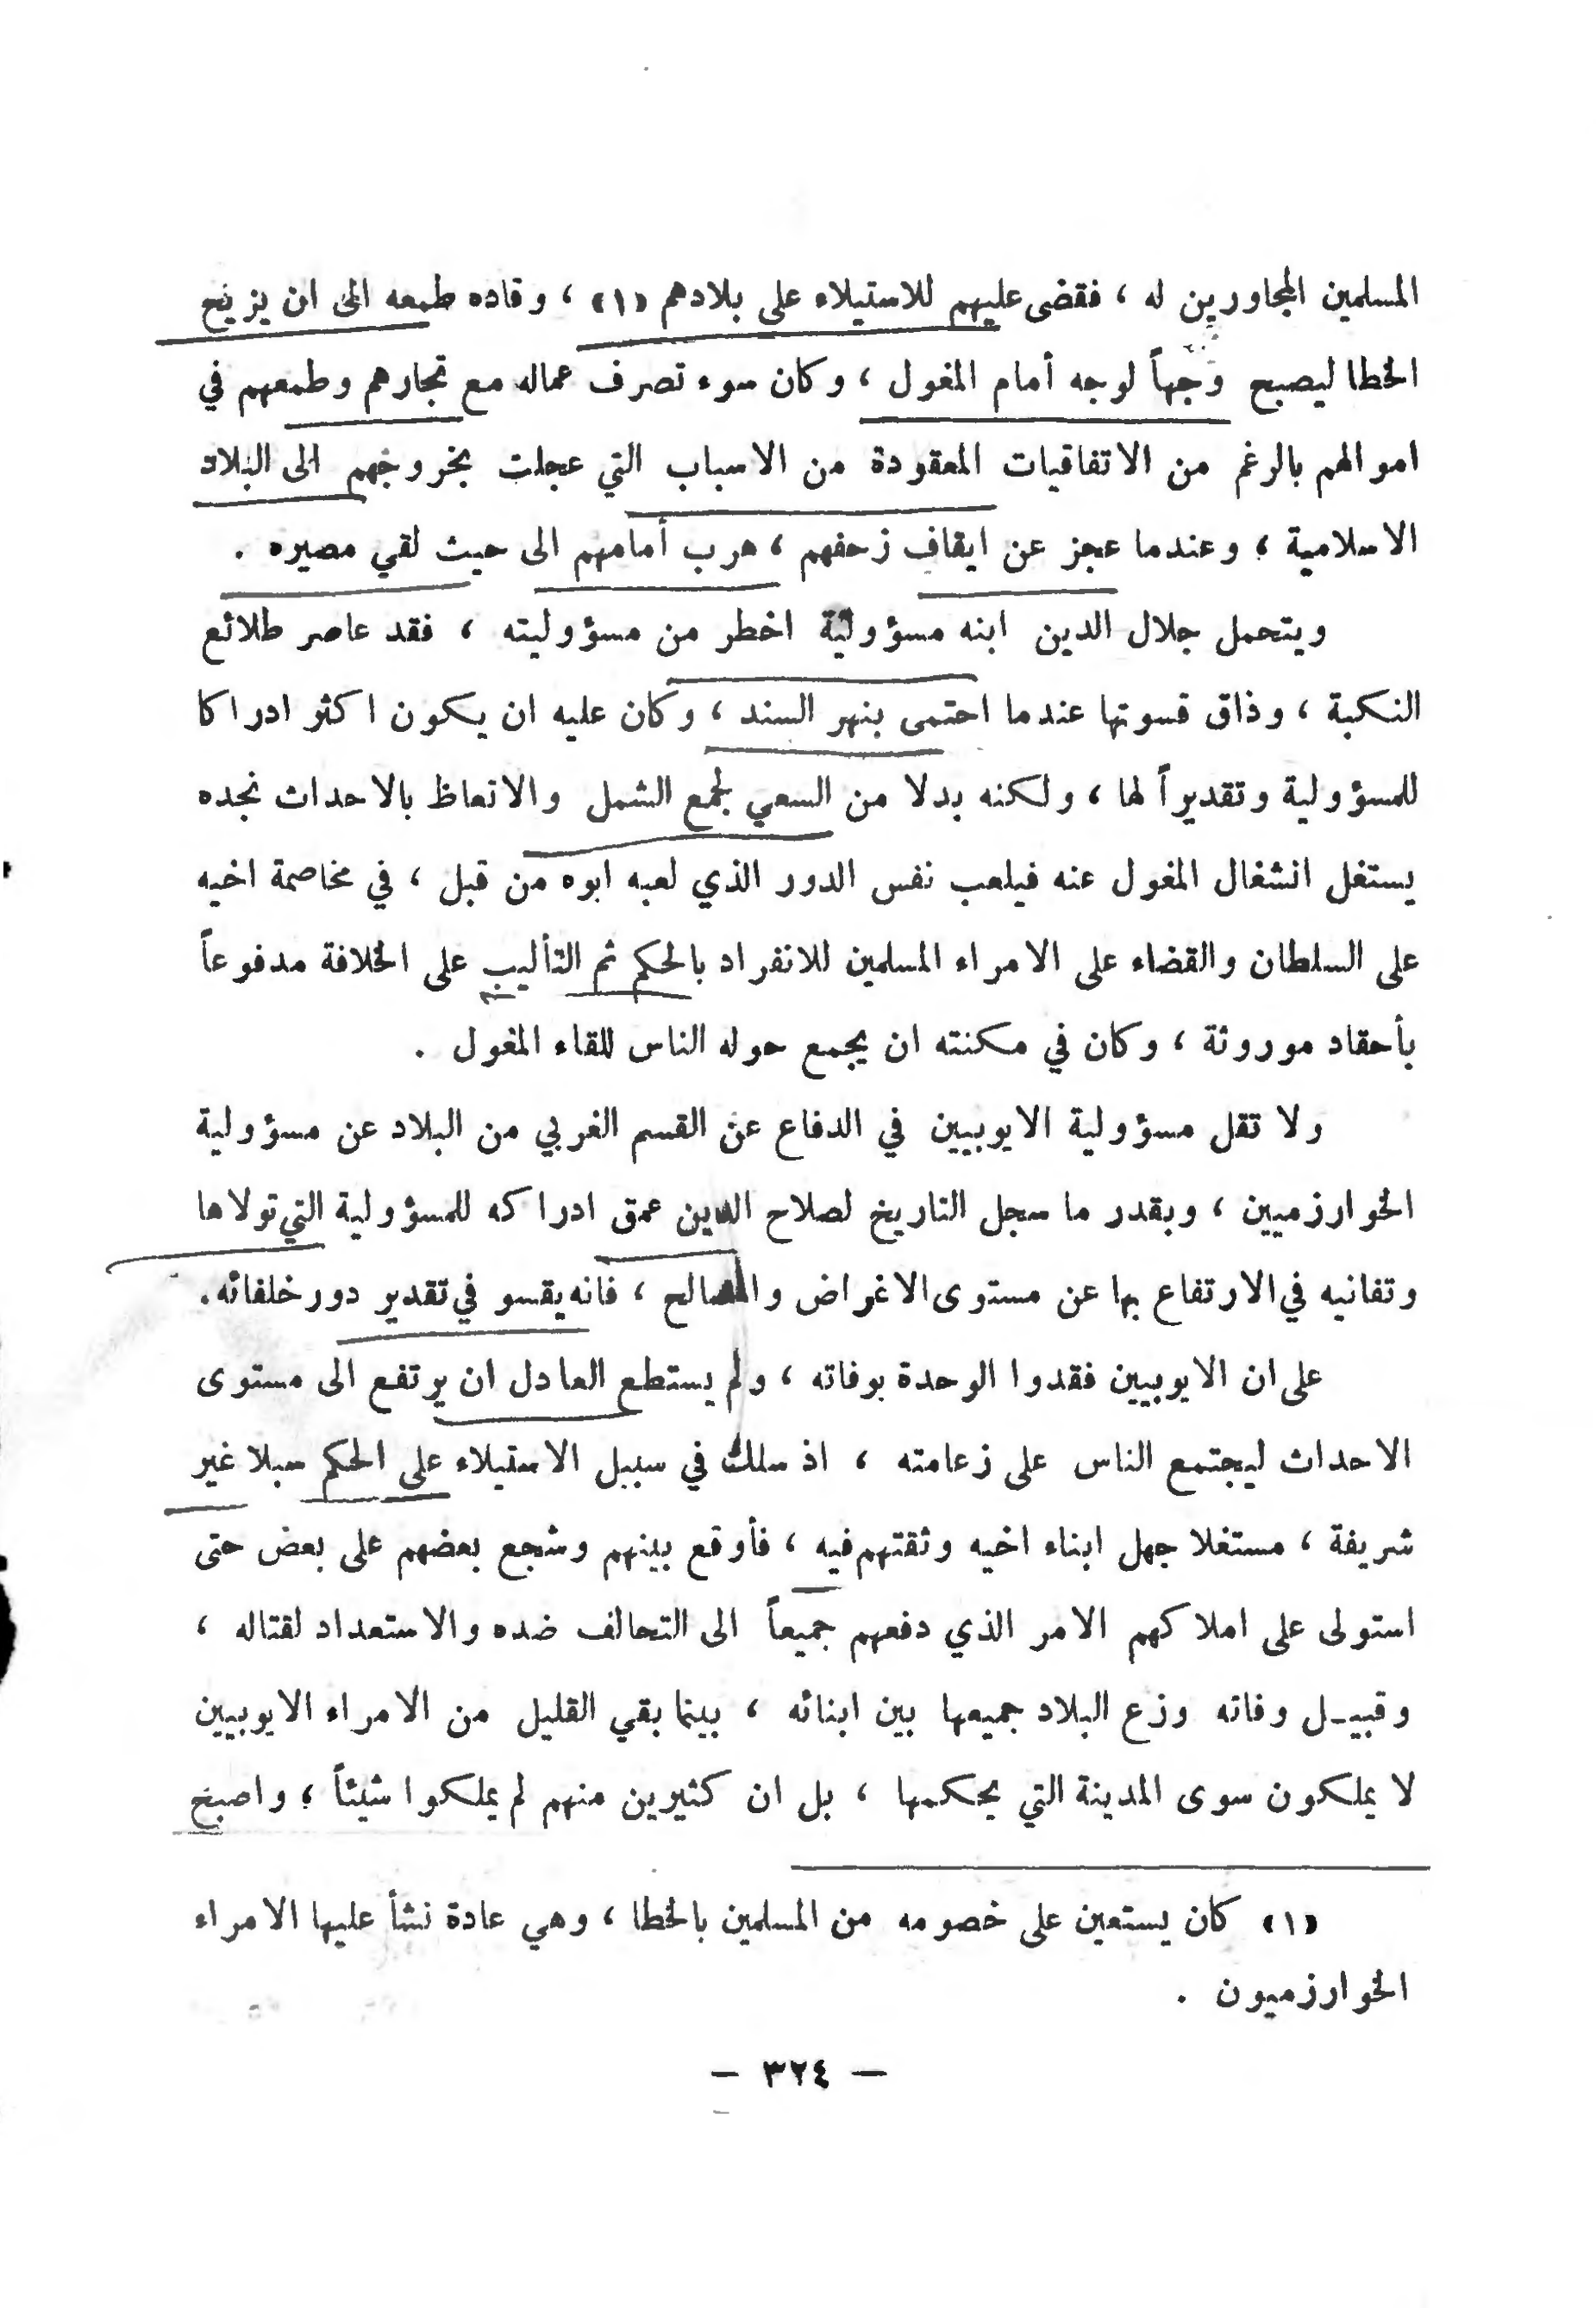 المسلمين المجاورين له ، فقضى عليهم للاستيلاء على بلادهم «١» ، وقاده طمعه الى ان يزيح
الخطا ليصبح وجهاً لوجه أمام المغول ، وكان سوء تصرف عماله مع تجارهم وطمعهم في
اموالهم بالرغم من الاتفاقيات المعقودة من الاسباب التي عجلت بخروجهم الى البلاد
الاسلامية ؛ وعندما عجز عن ايقاف زحفهم ، هرب أمامهم الى حيث لقي مصيره .
ويتحمل جلال الدين ابنه مسؤولية اخطر من مسؤوليته ، فقد عاصر طلائع
النكبة ، وذاق قسوتها عندما احتمى بنهر السند ، وكان عليه ان يكون اكثر ادراكا
للمسؤولية وتقديراً لها ، ولكنه بدلا من السعي لجمع الشمل والاتعاظ بالاحداث نجده
يستغل انشغال المغول عنه فيلعب نفس الدور الذي لعبه ابوه من قبل ، في مخاصمة اخيه
على السلطان والقضاء على الامراء المسلمين للانفراد بالحكم ثم التأليب على الخلافة مدفوعاً
بأحقاد موروثة ، وكان في مكنته ان يجمع حوله الناس للقاء المغول .
ولا تقل مسؤولية الايوبيين في الدفاع عن القسم الغربي من البلاد عن مسؤولية
الخوارزميين ، وبقدر ما سجل التاريخ لصلاح الدين عمق ادراكه للمسؤولية التي تولاها
وتفانيه في الارتفاع بها عن مستوى الاغراض والمصالح ، فانه يقسو في تقدير دور خلفائه.
على ان الايوبيين فقدوا الوحدة بوفاته ، ولم يستطع العادل ان يرتفع الى مستوى
الاحداث ليجتمع الناس على زعامته ، اذ سلك في سبيل الاستيلاء على الحكم سبلا غير
شريفة ، مستغلا جهل ابناء اخيه وثقتهم فيه ، فأوقع بينهم وشجع بعضهم على بعض حتى
استولى على املاكهم الامر الذي دفعهم جميعاً الى التحالف ضده والاستعداد لقتاله ،
وقبيـل وفاته وزع البلاد جميعها بين ابنائه ، بينما بقي القليل من الامراء الايوبيين
لا يملكون سوى المدينة التي يحكمها ، بل ان كثيرين منهم لم يملكوا شيئاً ؛ واصبح
«١» كان يستعين على خصومه من المسلمين بالخطا ، وهي عادة نشأ عليها الامراء
الخوارزميون .
— ٣٢٤ —